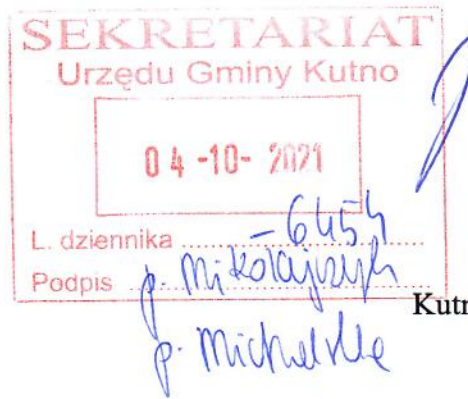 SEKRETARIAT
Urzędu Gminy Kutno
04-10-2021
L. dziennika ..... – 6454
Podpis ..... p. Mikołajczyk
p. Michalska
Kutn